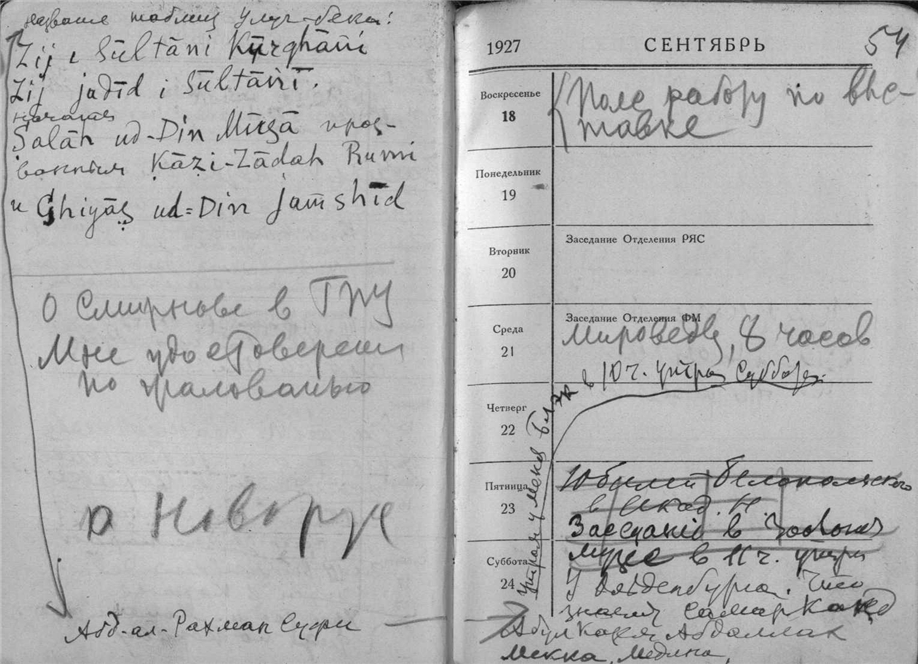 название таблиц Улуг-бека:
Zij i Sūltāni Kūrghāni
Zij jadīd i Sūltānī.
начатые
Salāh ud-Din Mūsā проз-
ванным Kāzi-Zādah Rumi
и Ghiyās ud-Din Jamshīd
О Смирнове в ГПУ
Мне удостоверени
по жалованью
о Новорус
Абд-ал-Рахман Суфи
1927 СЕНТЯБРЬ 54
Воскресенье
18
Поле работу по выс-
тавке
Понедельник
19
Вторник
20
Заседание Отделения РЯС
Среда
21
Заседание Отделения ФМ
Мироведов, 8 часов
в 10 ч. утра Суббота.
Четверг
22
утром у меня
Пятница
23
Юбилей Белопольского
в Акад. Н.
Заседаніе в Зоологич
музее в 11 ч. утра
Суббота
24
У Ольденбурга. Что
значит Самарканд
Абдаллах
Мекка, Медина,